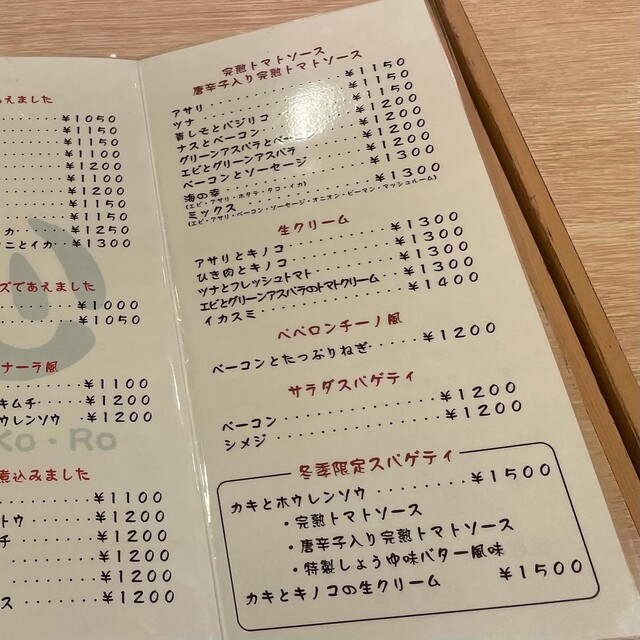 あえました
¥1050
¥1150
¥1150
¥1100
¥1200
¥1150
¥1150
カ・・¥1250
ことイカ・・¥1300
ズであえました
¥1000
¥1050
ナーラ風
¥1100
キムチ・・・・¥1200
ウレンソウ・¥1200
Ko・Ro
煮込みました
¥1100
トウ・・・・・・¥1200
チ・・・・・・¥1200
¥1200
¥1200
ス・・・・・・¥1200
完熟トマトソース
唐辛子入り完熟トマトソース
アサリ・・・・・・¥1150
ツナ・・・・・・¥1150
青しそとバジリコ ¥1150
ナスとベーコン・・・・¥1200
グリーンアスパラとベーコン ¥1200
エビとグリーンアスパラ ¥1200
ベーコンとソーセージ ¥1200
海の幸・・・・・・¥1300
(エビ・アサリ・ホタテ・タコ・イカ)
ミックス・・・・・・¥1300
(エビ・アサリ・ベーコン・ソーセージ・オニオン・ピーマン・マッシュルーム)
生クリーム
アサリとキノコ・・・・・・¥1300
ひき肉とキノコ・・・・・・¥1300
ツナとフレッシュトマト・・・・¥1300
エビとグリーンアスパラのトマトクリーム・・¥1300
イカスミ・・・・・・¥1400
ペペロンチーノ風
ベーコンとたっぷりねぎ・・・・・¥1200
サラダスパゲティ
ベーコン・・・・・・¥1200
シメジ・・・・・・¥1200
冬季限定スパゲティ
カキとホウレンソウ・・・・・・¥1500
・完熟トマトソース
・唐辛子入り完熟トマトソース
・特製しょうゆ味バター風味
カキとキノコの生クリーム ¥1500